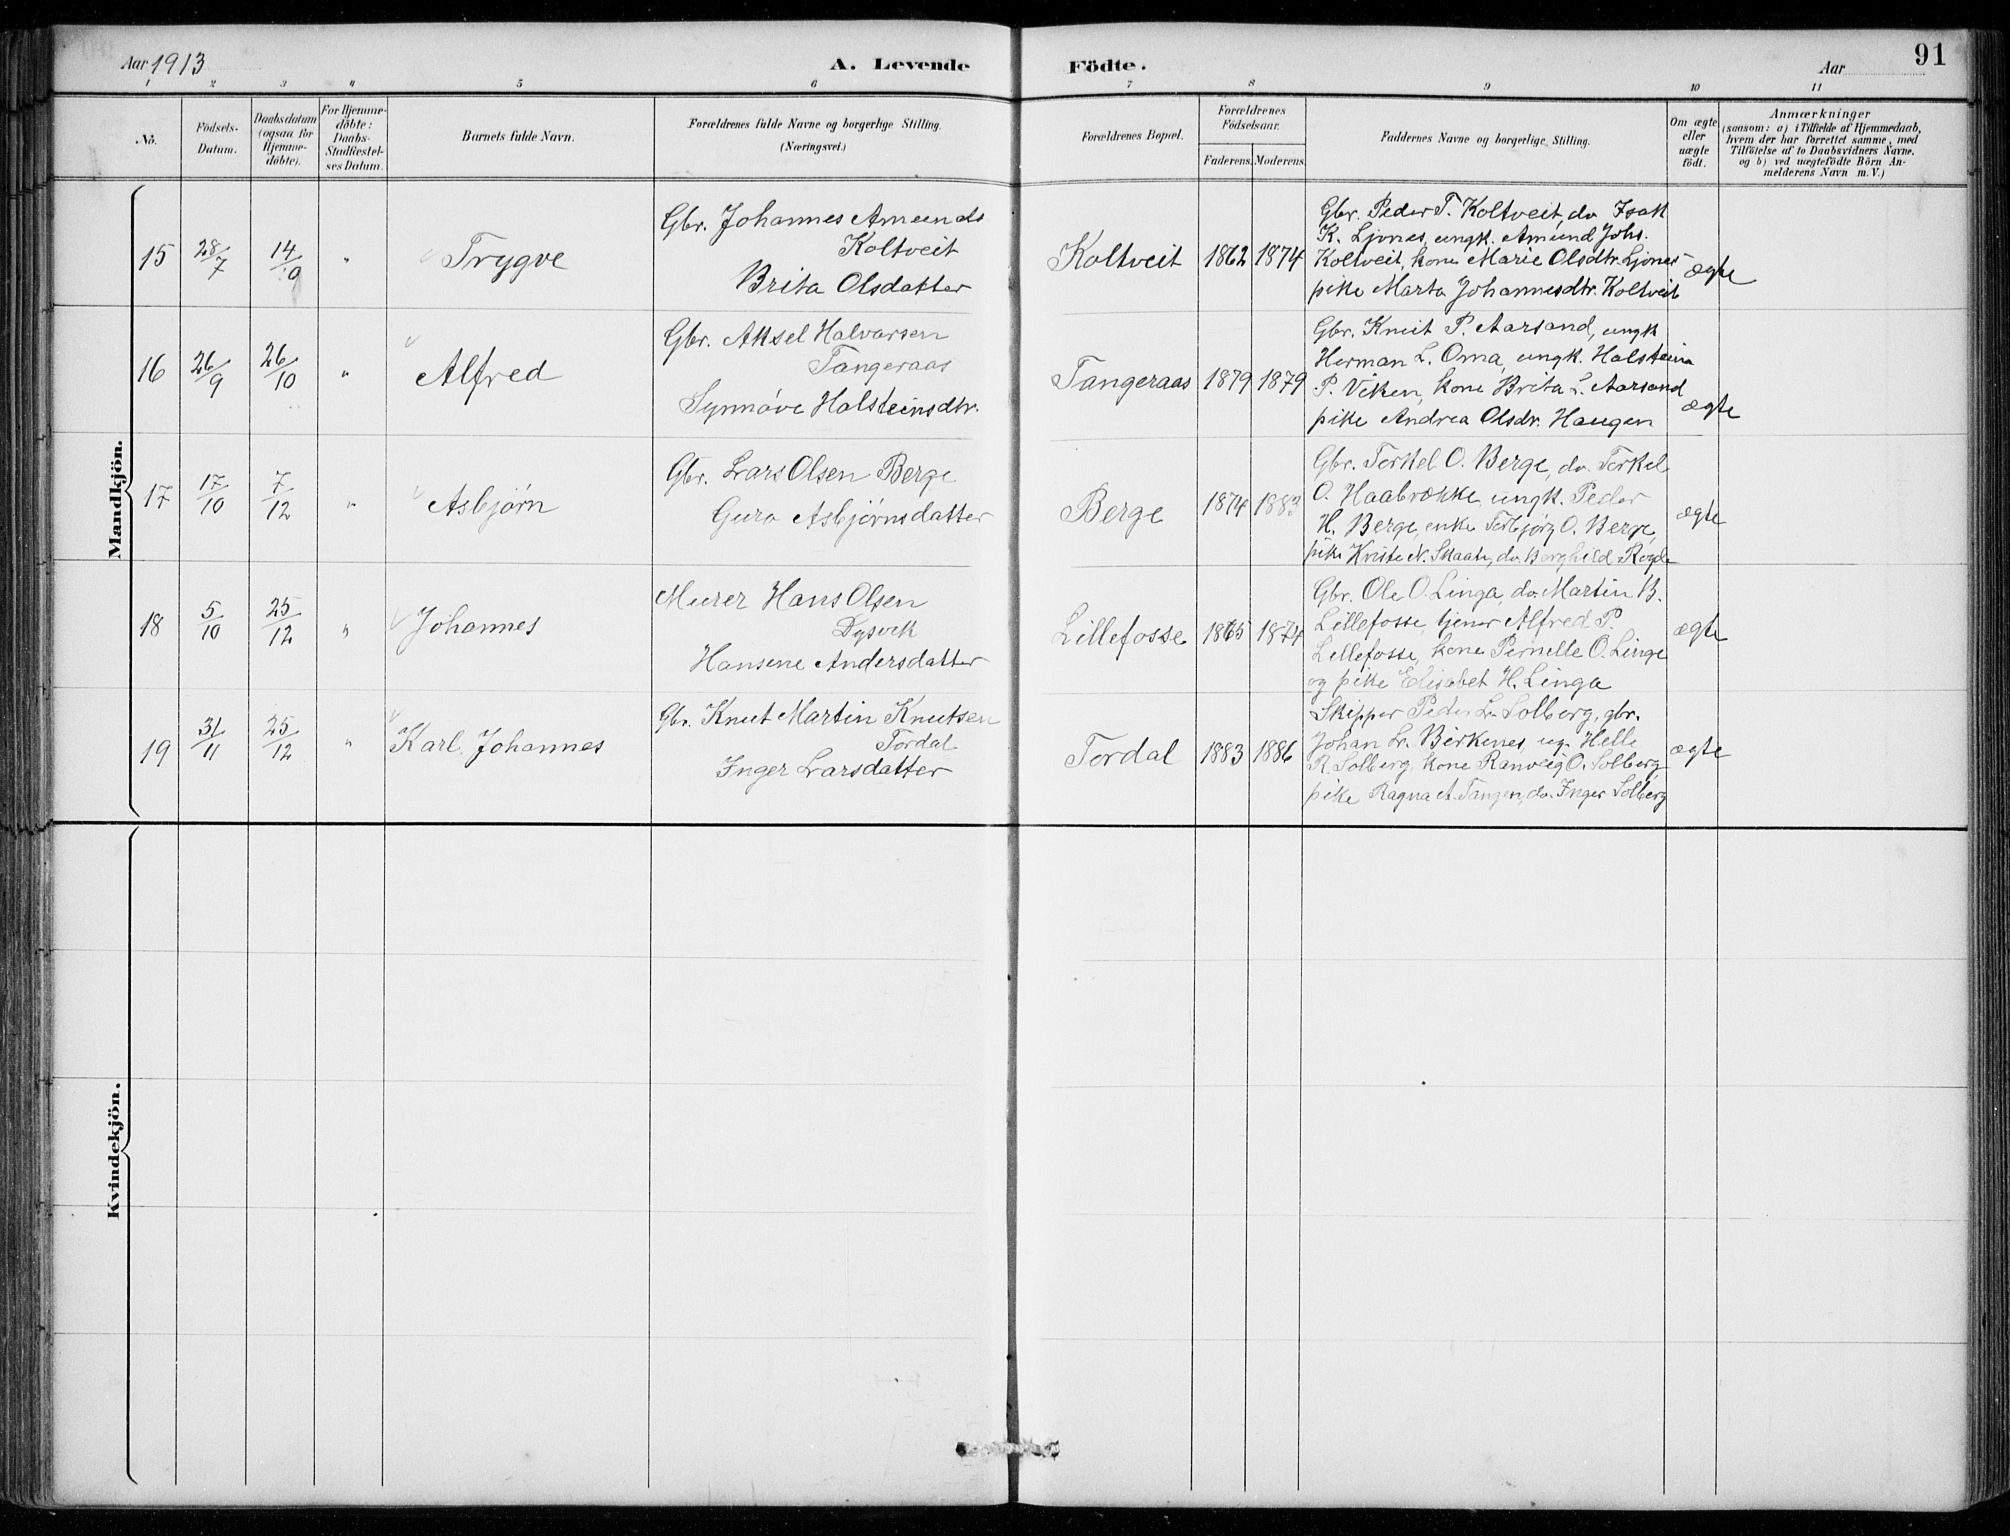 Aar 1913
A. Levende Födte.
Aar
91
1 2 3 4 5 6 7 8 9 10 11
No.
Födsels-Datum.
Daabsdatum (ogsaa for Hjemme-döbte).
For Hjemme-döbte: Daabs-Stadfæstel-ses Datum.
Barnets fulde Navn.
Forældrenes fulde Navne og borgerlige Stilling.
(Næringsvei.)
Forældrenes Bopæl.
Forældrenes Födselsaar.
Faderens. Moderens.
Faddernes Navne og borgerlige Stilling.
Om ægte eller uægte födt.
Anmærkninger
(saasom: a) i Tilfælde af Hjemmedaab,
hvem der har forrettet samme, med
Tilföielse af to Daabsvidners Navne,
og b) ved uægtefödte Börn An-
melderens Navn m. V.)
Mandkjön.
15 28/7 14/10 " Trygve
Gbr. Johannes Amunds
Koltveit
Brita Olsdatter
Koltveit 1862 1874
Gbr. Peder T. Koltveit, do Isak
K. Ljones, ungk. Amund Johs.
Koltveit, kone Marie Olsdtr. Ljones
pike Marta Johannesdtr. Koltveit
ægte
16 26/9 26/10 " Alfred
Gbr. Aksel Halvorsen
Tangeraas
Synnøve Halsteinsdtr.
Tangeraas 1879 1879
Gbr. Knut P. Aarsand, ungk
Herman L. Oma, ungk. Halstein
P. Viken, kone Brita L. Aarsand
pike Andrea Olsdr. Haugen
ægte
17 17/10 7/12 " Asbjørn
Gbr. Lars Olsen Berge
Guro Asbjørnsdatter
Berge 1874 1883
Gbr. Torkel O. Berge, do. Torkel
O. Haabrække, ungk. Peder
H. Berge, enke Torbjørg O. Berge,
pike Kriste N. Skaate, do. Borghild
ægte
18 5/10 25/12 " Johannes
Murer Hans Olsen
Dysvik
Hansene Andersdatter
Lillefosse 1865 1874
Gbr. Ole O. Linga, do. Martin B.
Lillefosse, tjener Alfred P.
Lillefosse, kone Pernelle O. Linge
og pike Elisabet H. Linga
ægte
19 31/11 25/12 " Karl Johannes
Gbr. Knut Martin Knutsen
Tordal
Inger Larsdatter
Tordal 1883 1886
Skipper Peder L. Solberg, gbr.
Johan L. Birkenes, ug. Helle
R. Solberg, kone Ranveig O. Solberg
pike Ragna A. Tangen, do. Inger Solberg
ægte
Kvindekjön.